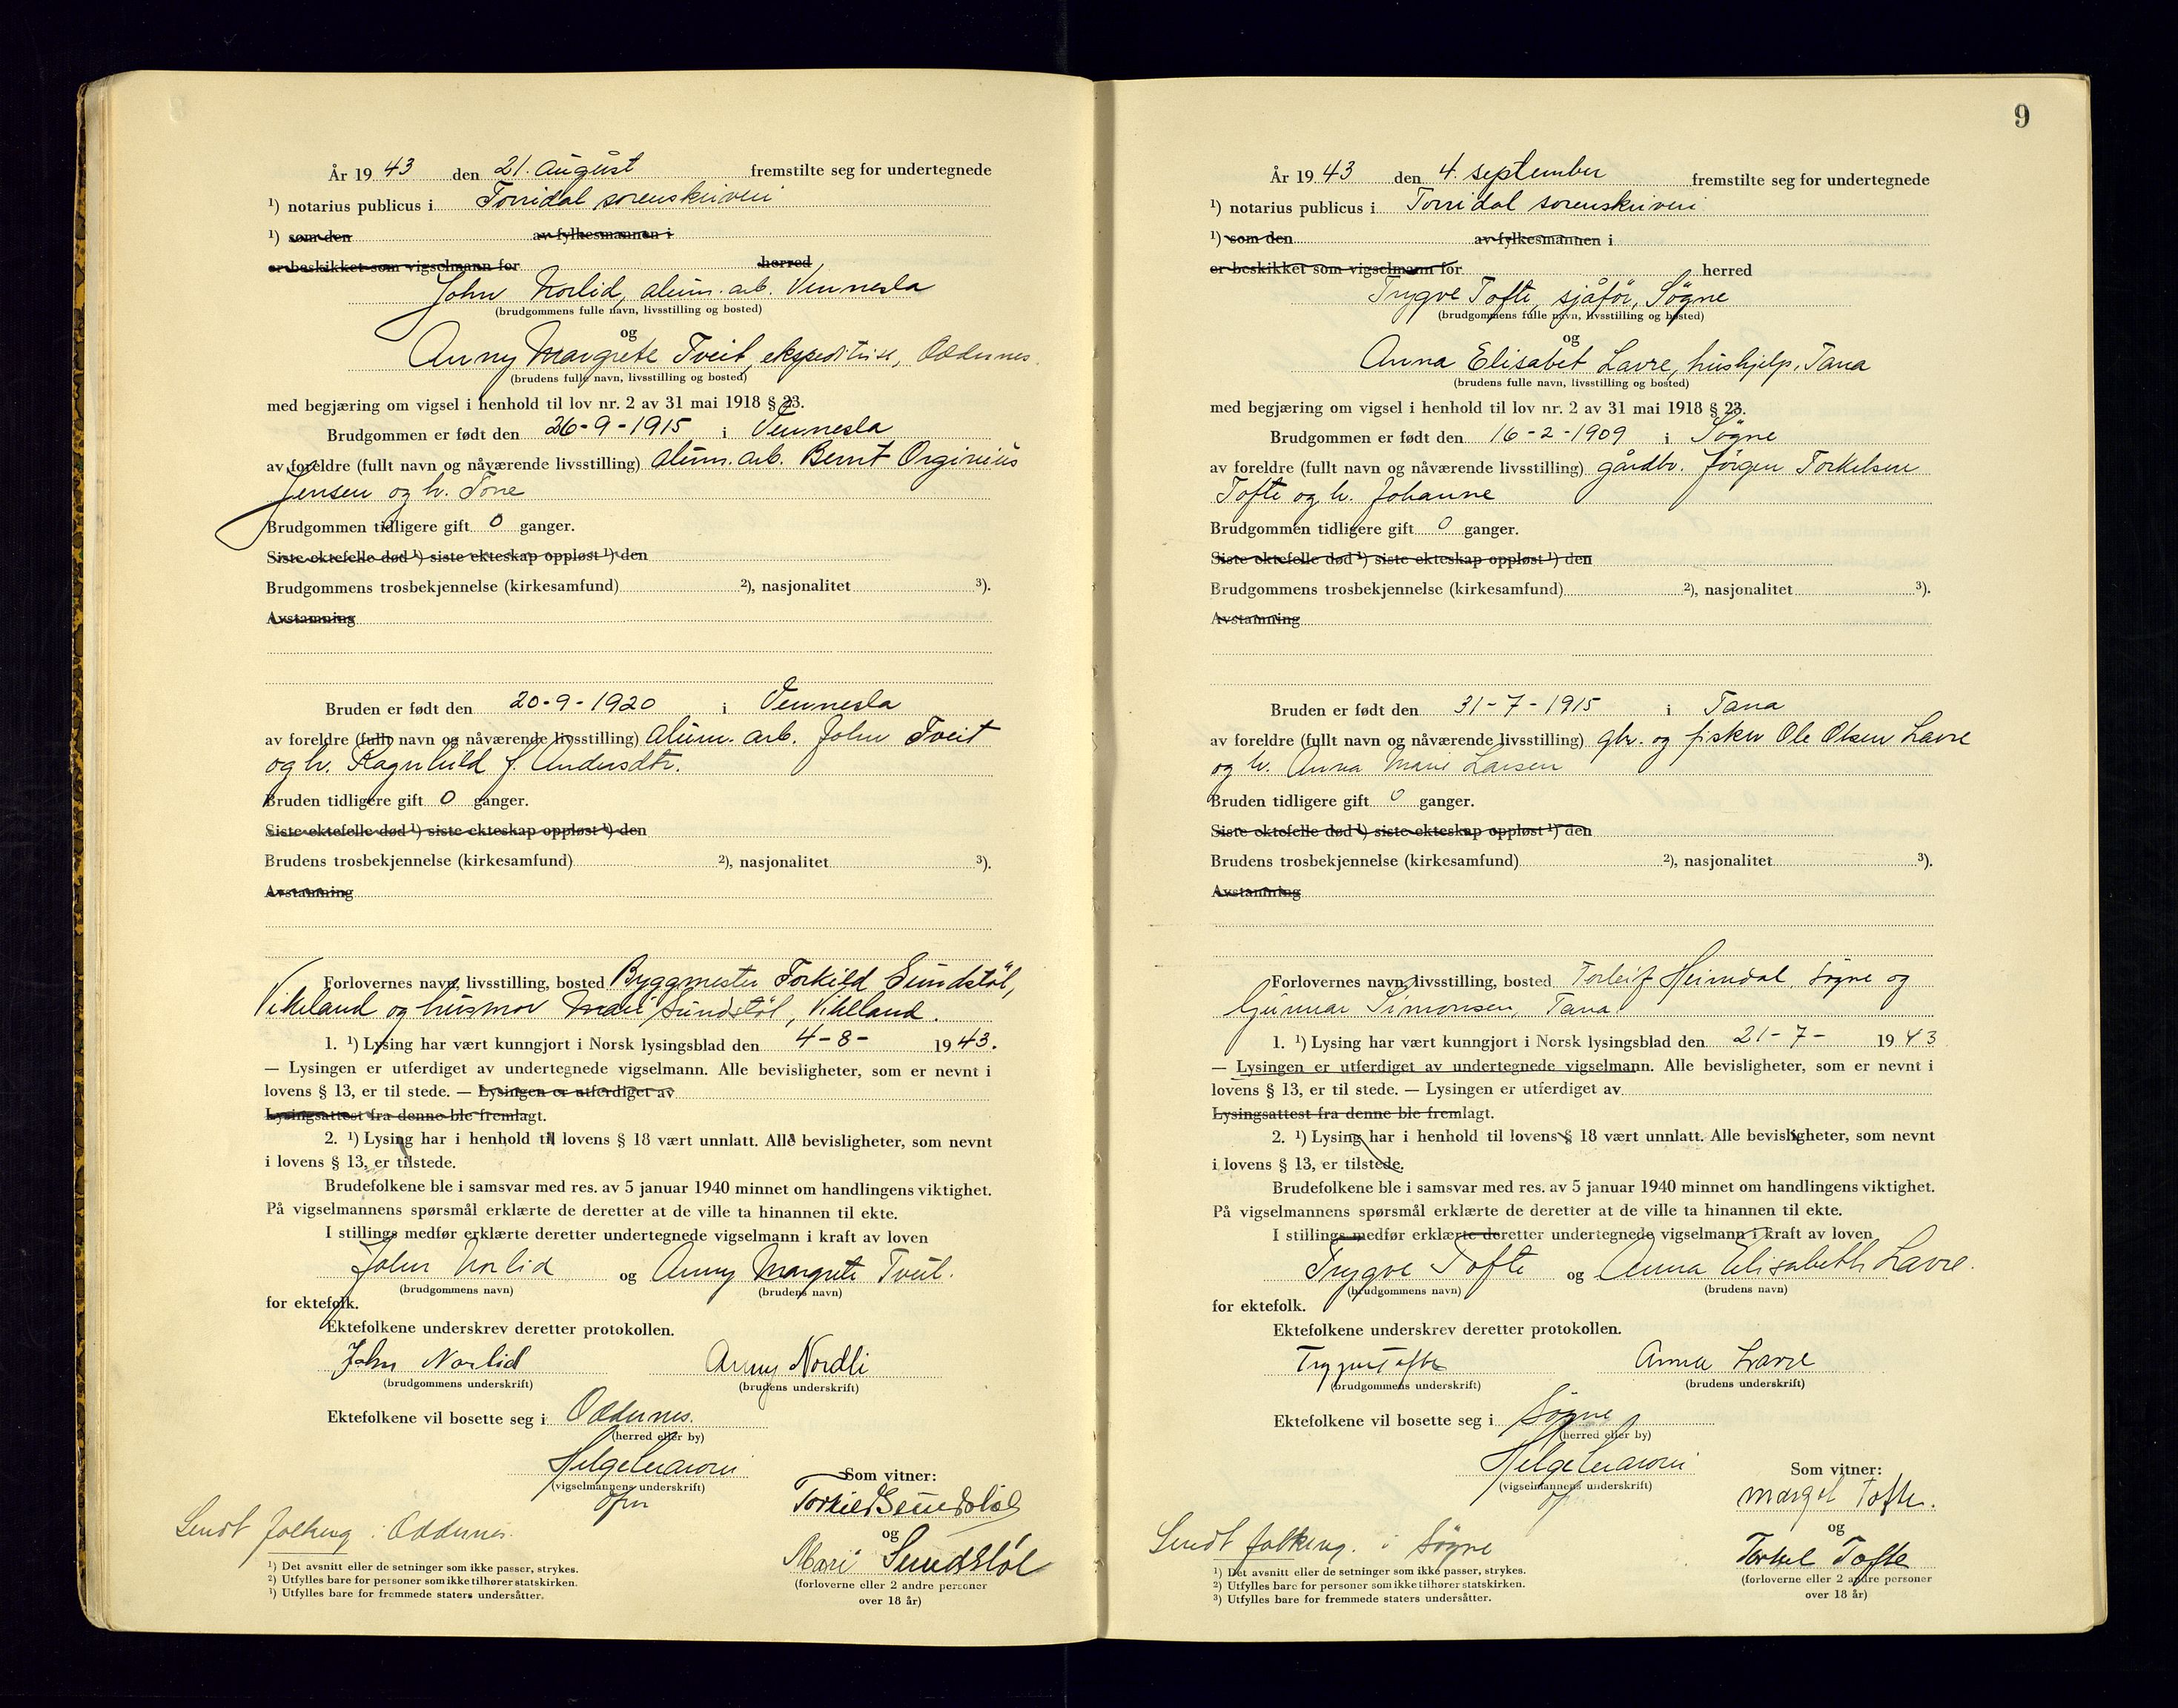 År 1943 den 21. August fremstilte seg for undertegnede
¹) notarius publicus i Torridal sorenskriveri
¹) som den av fylkesmannen i
er beskikket som vigselmann for herred
John Norlid, alum. arb. Vennesla
(brudgommens fulle navn, livsstilling og bosted)
og
Anny Margrete Tveit, ekspeditrise, Oddernes.
(brudens fulle navn, livsstilling og bosted)
med begjæring om vigsel i henhold til lov nr. 2 av 31 mai 1918 § 23.
Brudgommen er født den 26-9-1915 i Vennesla
av foreldre (fullt navn og nåværende livsstilling) alum. arb. Bernt Orginius
Jensen og h. Tone
Brudgommen tidligere gift 0 ganger.
Siste ektefelle død ¹) siste ekteskap oppløst ¹) den
Brudgommens trosbekjennelse (kirkesamfund) ²), nasjonalitet ³).
Avstamning
Bruden er født den 20-9-1920 i Vennesla
av foreldre (fullt navn og nåværende livsstilling) alum. arb. John Tveit
og h. Ragnhild f. Andersdtr.
Bruden tidligere gift 0 ganger.
Siste ektefelle død ¹) siste ekteskap oppløst ¹) den
Brudens trosbekjennelse (kirkesamfund) ²), nasjonalitet ³).
Avstamning
Forlovernes navn, livsstilling, bosted Byggmester Torkild Sundstøl,
Vikeland og husmor Mari Sundstøl, Vikeland.
1. ¹) Lysing har vært kunngjort i Norsk lysingsblad den 4-8- 1943.
— Lysingen er utferdiget av undertegnede vigselmann. Alle bevisligheter, som er nevnt i
lovens § 13, er til stede. — Lysingen er utferdiget av
Lysingsattest fra denne ble fremlagt.
2. ¹) Lysing har i henhold til lovens § 18 vært unnlatt. Alle bevisligheter, som nevnt
i lovens § 13, er tilstede.
Brudefolkene ble i samsvar med res. av 5 januar 1940 minnet om handlingens viktighet.
På vigselmannens spørsmål erklærte de deretter at de ville ta hinannen til ekte.
I stillings medfør erklærte deretter undertegnede vigselmann i kraft av loven
John Norlid og Anny Margrete Tveit.
(brudgommens navn) (brudens navn)
for ektefolk.
Ektefolkene underskrev deretter protokollen.
John Norlid Anny Nordli
(brudgommens underskrift) (brudens underskrift)
Ektefolkene vil bosette seg i Oddernes.
(herred eller by)
(vigselmannens underskrift) Som vitner:
Torkild Sundstøl
og
Sendt folkereg. i Oddernes.
Mari Sundstøl
(forloverne eller 2 andre personer
over 18 år)
¹) Det avsnitt eller de setninger som ikke passer, strykes.
²) Utfylles bare for personer som ikke tilhører statskirken.
³) Utfylles bare for fremmede staters undersåtter.
9
År 1943 den 4. september fremstilte seg for undertegnede
¹) notarius publicus i Torridal sorenskriveri
¹) som den av fylkesmannen i
er beskikket som vigselmann for herred
Trygve Tofte, sjåfør, Søgne
(brudgommens fulle navn, livsstilling og bosted)
og
Anna Elisabet Lavre, hushjelp, Tana
(brudens fulle navn, livsstilling og bosted)
med begjæring om vigsel i henhold til lov nr. 2 av 31 mai 1918 § 23.
Brudgommen er født den 16-2-1909 i Søgne
av foreldre (fullt navn og nåværende livsstilling) gårdbr. Jørgen Torkelsen
Tofte og h. Johanne
Brudgommen tidligere gift 0 ganger.
Siste ektefelle død ¹) siste ekteskap oppløst ¹) den
Brudgommens trosbekjennelse (kirkesamfund) ²), nasjonalitet ³).
Avstamning
Bruden er født den 31-7-1915 i Tana
av foreldre (fullt navn og nåværende livsstilling) gbr. og fisker Ole Olsen Lavre
og h. Anna Marie Larsen
Bruden tidligere gift 0 ganger.
Siste ektefelle død ¹) siste ekteskap oppløst ¹) den
Brudens trosbekjennelse (kirkesamfund) ²), nasjonalitet ³).
Avstamning
Forlovernes navn, livsstilling, bosted Torleif Heimdal, Søgne og
Gunnar Simonsen, Tana
1. ¹) Lysing har vært kunngjort i Norsk lysingsblad den 21-7- 1943
— Lysingen er utferdiget av undertegnede vigselmann. Alle bevisligheter, som er nevnt i
lovens § 13, er til stede. — Lysingen er utferdiget av
Lysingsattest fra denne ble fremlagt.
2. ¹) Lysing har i henhold til lovens § 18 vært unnlatt. Alle bevisligheter, som nevnt
i lovens § 13, er tilstede.
Brudefolkene ble i samsvar med res. av 5 januar 1940 minnet om handlingens viktighet.
På vigselmannens spørsmål erklærte de deretter at de ville ta hinannen til ekte.
I stillings medfør erklærte deretter undertegnede vigselmann i kraft av loven
Trygve Tofte og Anna Elisabeth Lavre.
(brudgommens navn) (brudens navn)
for ektefolk.
Ektefolkene underskrev deretter protokollen.
Trygve Tofte Anna Lavre
(brudgommens underskrift) (brudens underskrift)
Ektefolkene vil bosette seg i Søgne
(herred eller by)
(vigselmannens underskrift) Som vitner:
Margot Tofte.
og
Sendt folkereg. i Søgne
Torkel Tofte
(forloverne eller 2 andre personer
over 18 år)
¹) Det avsnitt eller de setninger som ikke passer, strykes.
²) Utfylles bare for personer som ikke tilhører statskirken.
³) Utfylles bare for fremmede staters undersåtter.